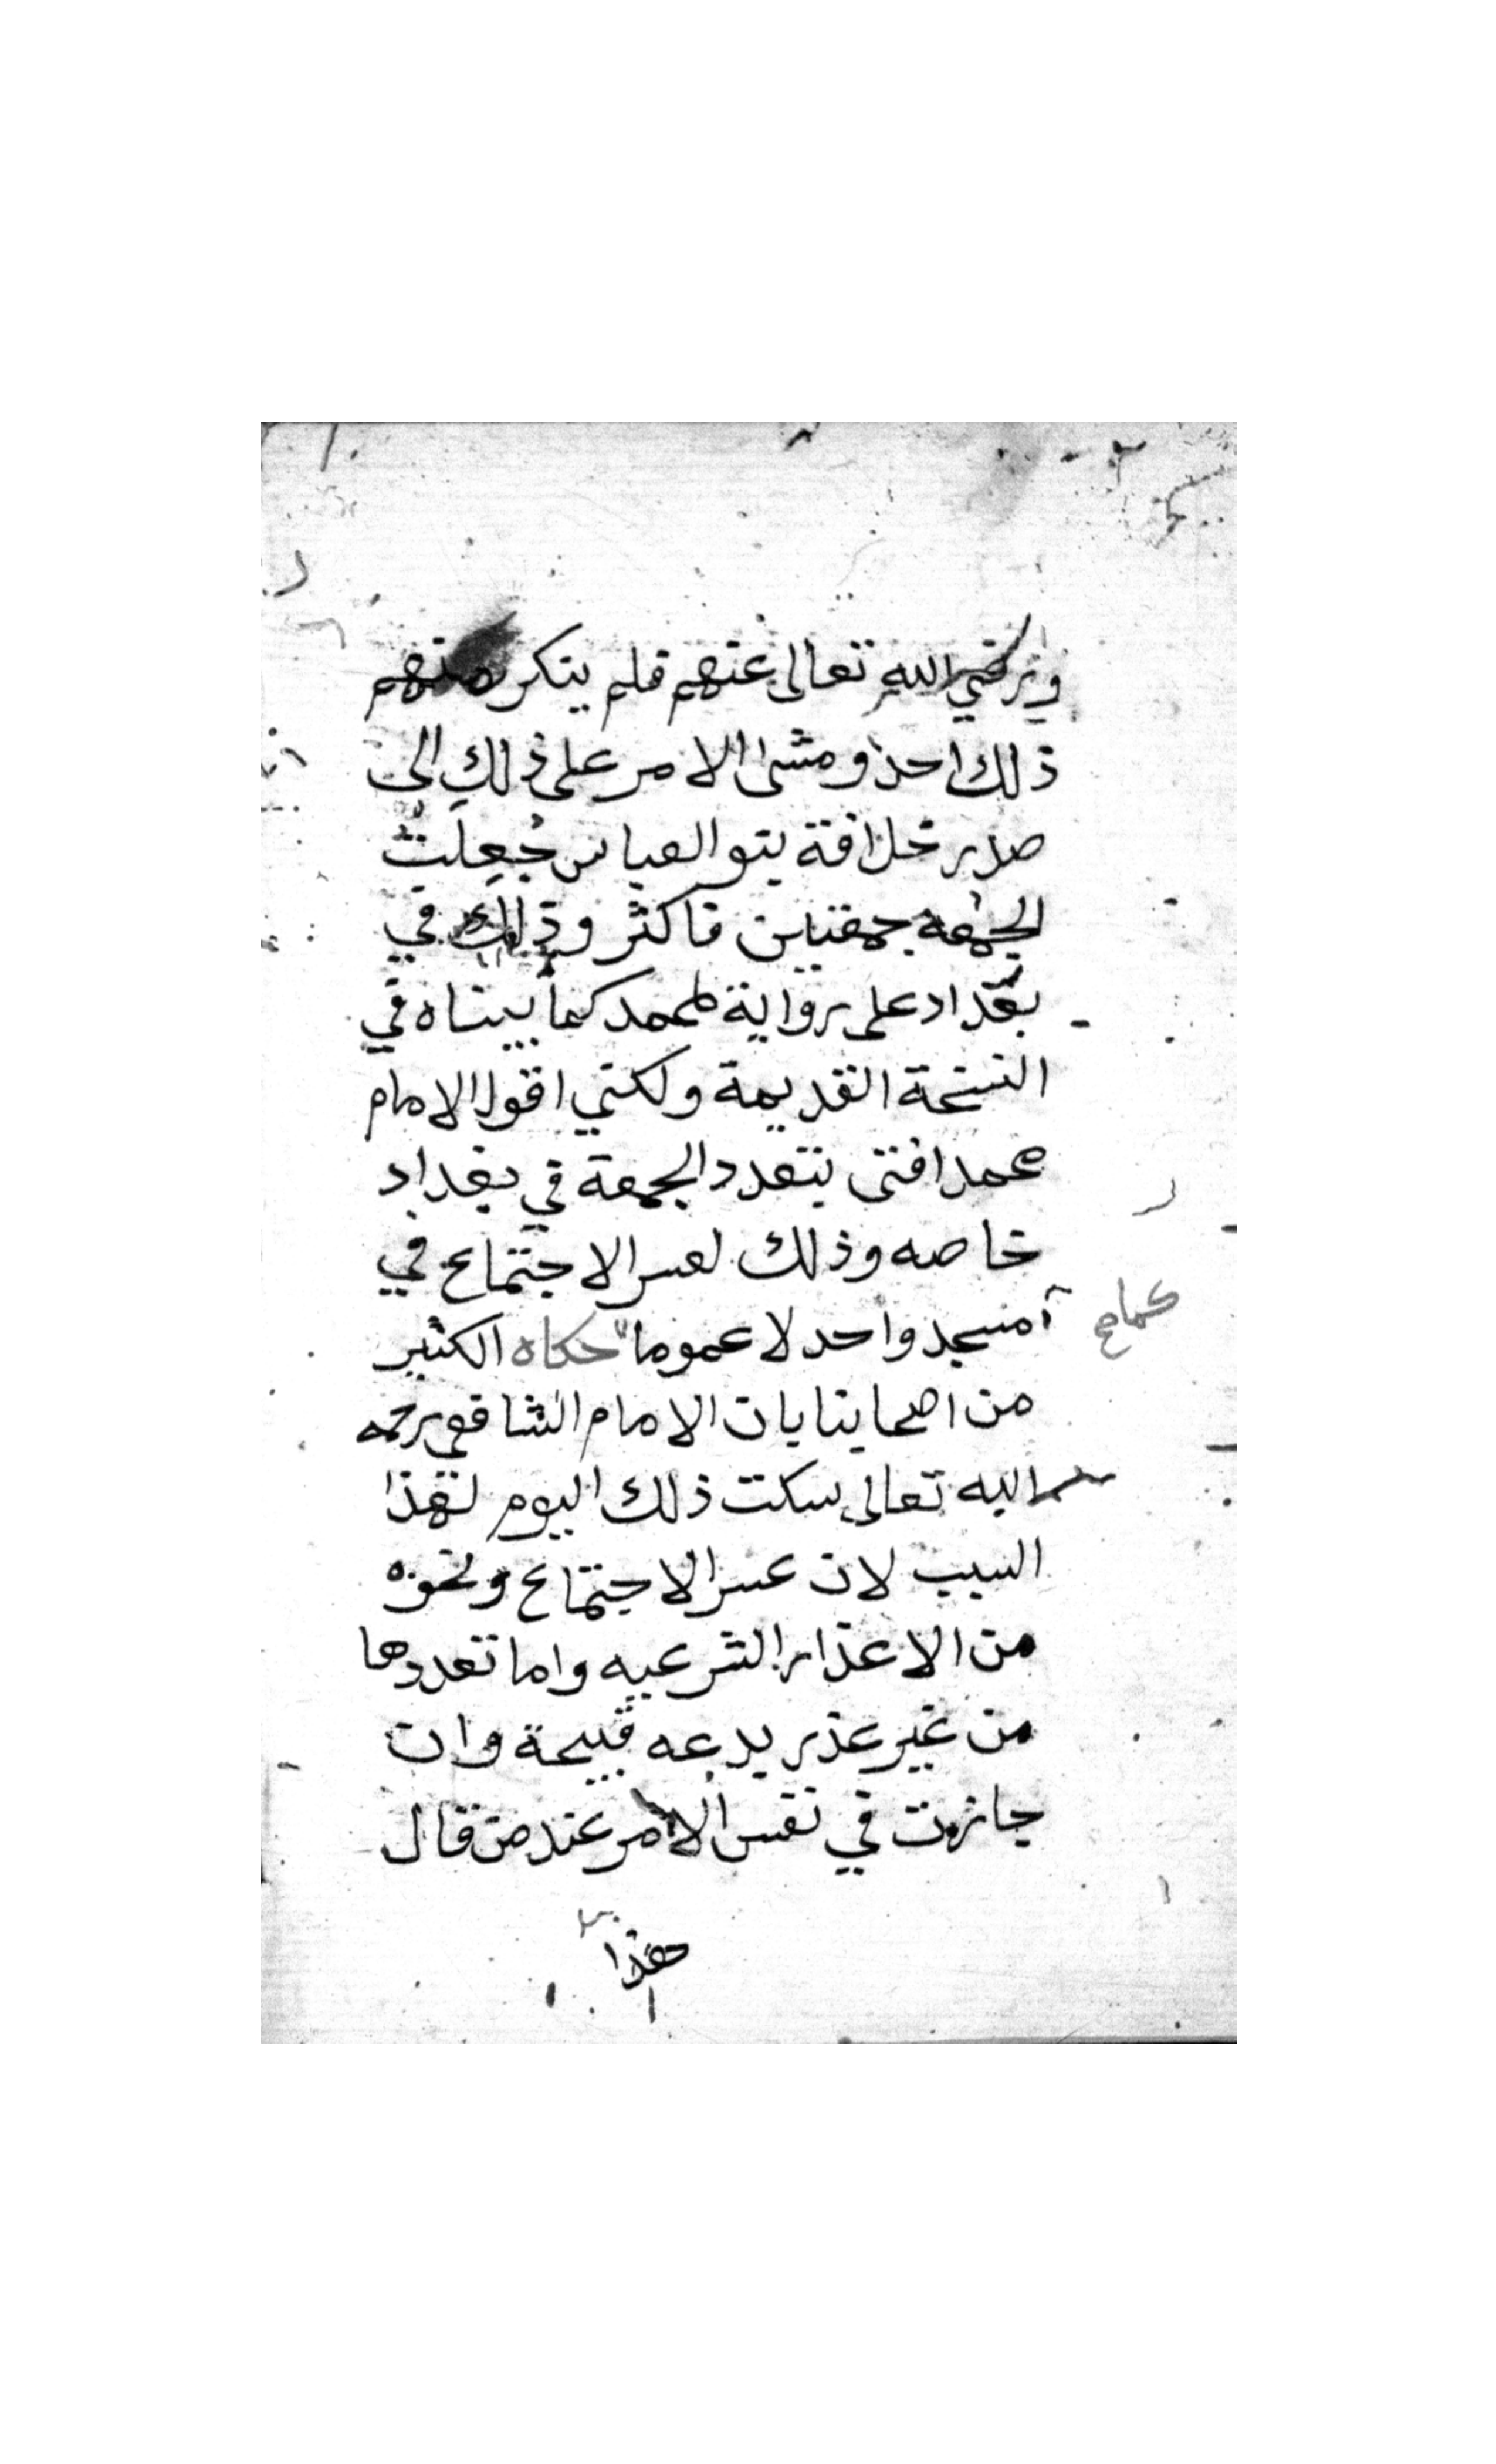 ورضي الله تعالى عنهم فلم ينكر منهم
ذلك احد ومشى الامر على ذلك الى
صدر خلافة بنو العباس جُعِلت
الجمعة جمعتين فاكثر وذلك في
بغداد على رواية لمحمد كما بيناه في
النسخة القديمة ولكني اقول الامام
محمد افتى بتعدد الجمعة في بغداد
خاصه وذلك لعسر الاجتماع في
مسجد واحد لا عموما حكاه الكثير
كما
من اصحابنا بان الامام الشافعي رحمه
الله تعالى سكت ذلك اليوم لهذا
السبب لان عسر الاجتماع ونحوه
من الاعذار الشرعيه واما تعددها
من غير عذر بدعه قبيحة وان
جازت في نفس الامر عند من قال
هذا